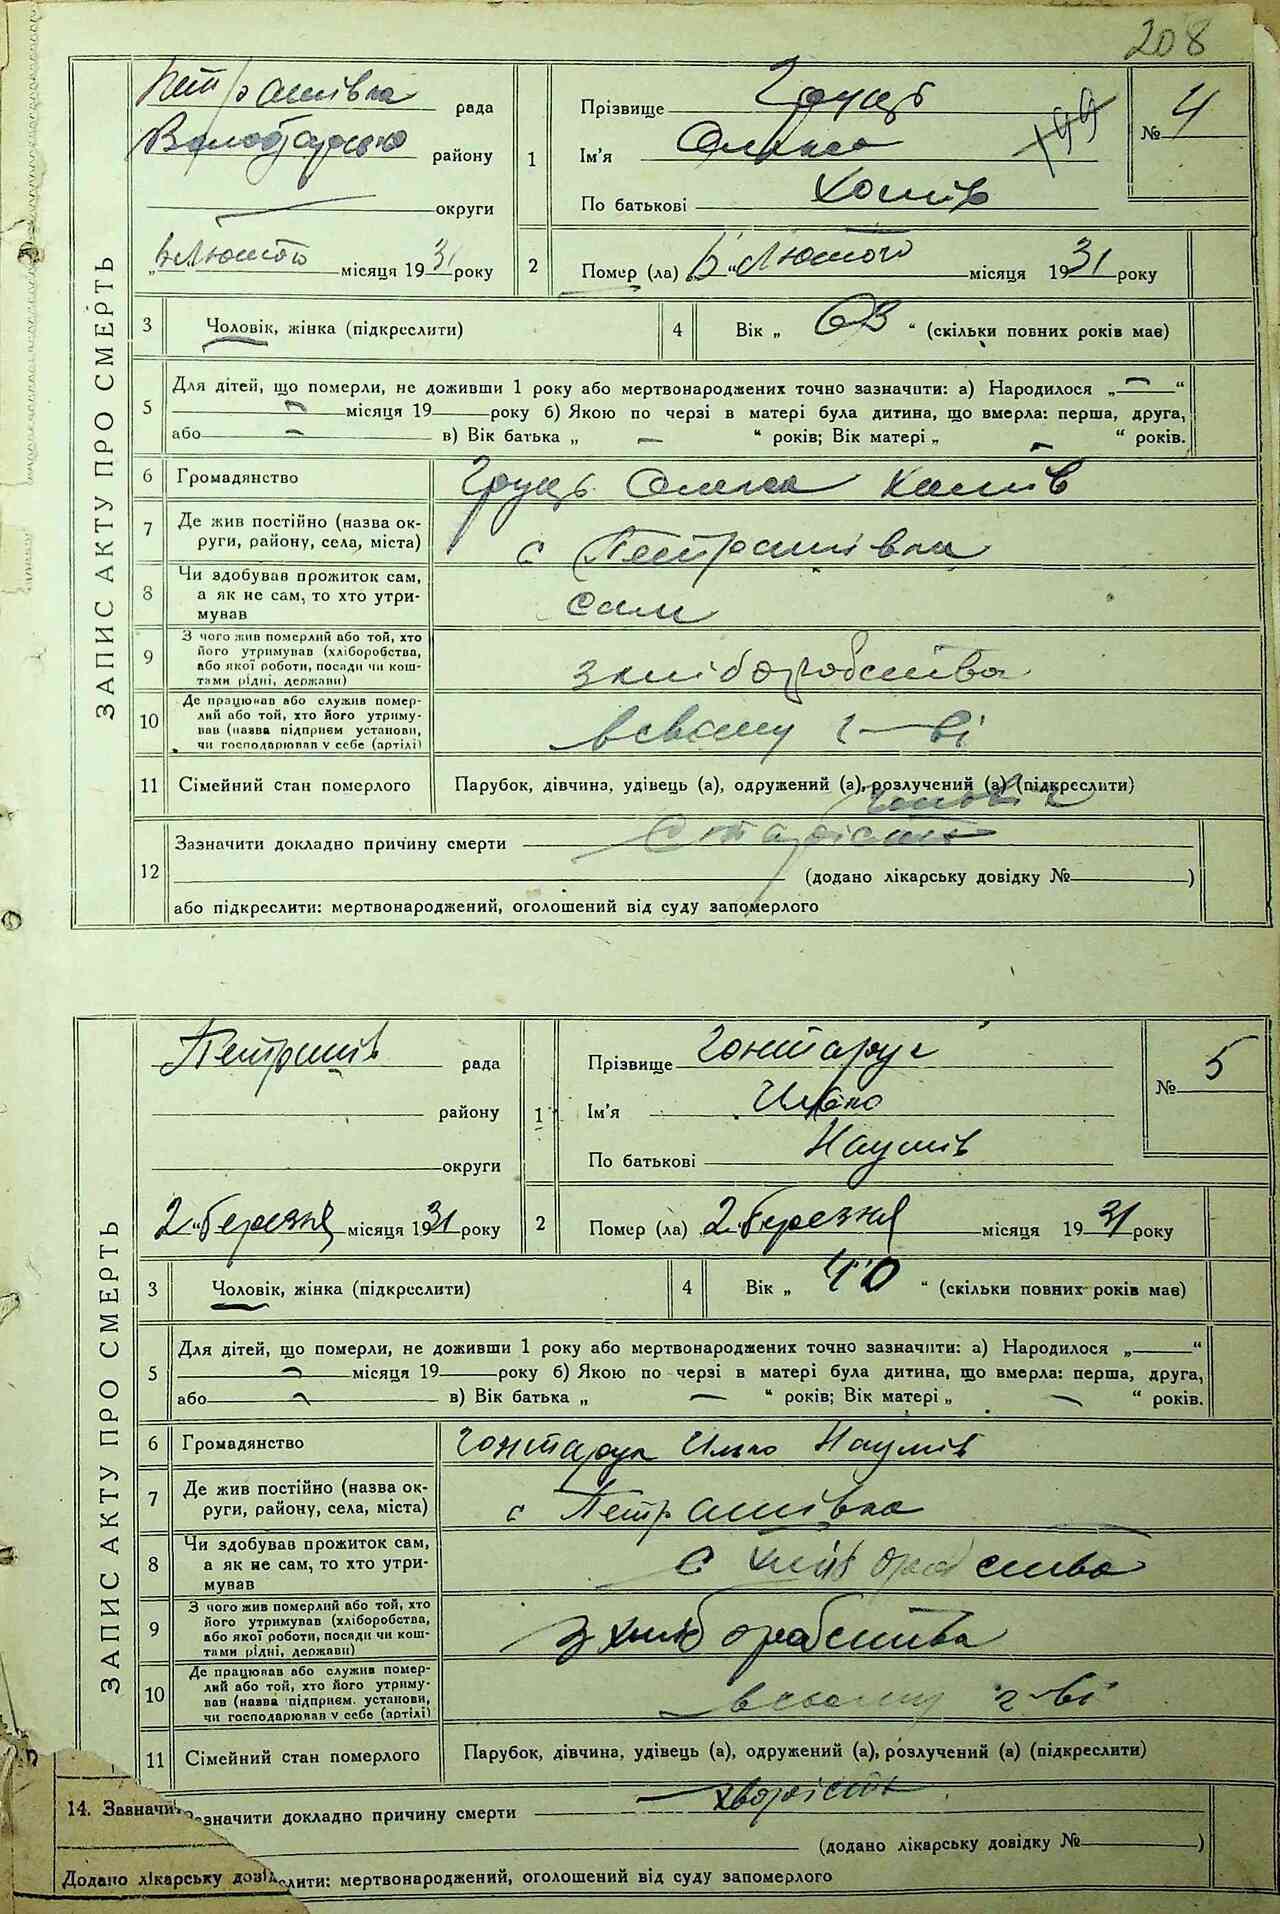 208
ЗАПИС АКТУ ПРО СМЕРТЬ
Петрашівка рада
району
округи
Лютого місяця 1931 року
1 Прізвище Груць
Ім'я Олекса
По батькові Хомів
199
№ 4
2 Помер (ла) „ “ Лютого місяця 1931 року
3 Чоловік, жінка (підкреслити)
4 Вік „ 63 “ (скільки повних років має)
5 Для дітей, що померли, не доживши 1 року або мертвонароджених точно зазначити: а) Народилося „ — “
— місяця 19 року б) Якою по черзі в матері була дитина, що вмерла: перша, друга,
або — в) Вік батька „ — “ років; Вік матері „ — “ років.
6 Громадянство Груць Олекса Хомів
7 Де жив постійно (назва ок-
руги, району, села, міста) с Петрашівка
8 Чи здобував прожиток сам,
а як не сам, то хто утри-
мував сам
9 З чого жив померлий або той, хто
його утримував (хліборобства,
або якої роботи, посади чи кош-
тами рідні, держави) з хліборобства
10 Де працював або служив помер-
лий або той, хто його утриму-
вав (назва підприєм установи,
чи господарював у себе (артілі) в свому г-ві
11 Сімейний стан померлого Парубок, дівчина, удівець (а), одружений (а), розлучений (а) (підкреслити)
12 Зазначити докладно причину смерти старість
(додано лікарську довідку № )
або підкреслити: мертвонароджений, оголошений від суду запомерлого
ЗАПИС АКТУ ПРО СМЕРТЬ
Петрашів рада
району
округи
2 “ Березня місяця 1931 року
1 Прізвище Гонтарук
Ім'я Илько
По батькові Наумів
№ 5
2 Помер (ла) „ 2 “ Березня місяця 1931 року
3 Чоловік, жінка (підкреслити)
4 Вік „ 40 “ (скільки повних років має)
5 Для дітей, що померли, не доживши 1 року або мертвонароджених точно зазначити: а) Народилося „ “
— місяця 19 року б) Якою по черзі в матері була дитина, що вмерла: перша, друга,
або — в) Вік батька „ — “ років; Вік матері „ — “ років.
6 Громадянство Гонтарук Илько Наумів
7 Де жив постійно (назва ок-
руги, району, села, міста) с Петрашівка
8 Чи здобував прожиток сам,
а як не сам, то хто утри-
мував с хліборобства
9 З чого жив померлий або той, хто
його утримував (хліборобства,
або якої роботи, посади чи кош-
тами рідні, держави) з хліборобства
10 Де працював або служив помер-
лий або той, хто його утриму-
вав (назва підприєм. установи,
чи господарював у себе (артілі) в свому г-ві
11 Сімейний стан померлого Парубок, дівчина, удівець (а), одружений (а), розлучений (а) (підкреслити)
14. Зазначи
Зазначити докладно причину смерти хворість
(додано лікарську довідку № )
Додано лікарську довід
слити: мертвонароджений, оголошений від суду запомерлого